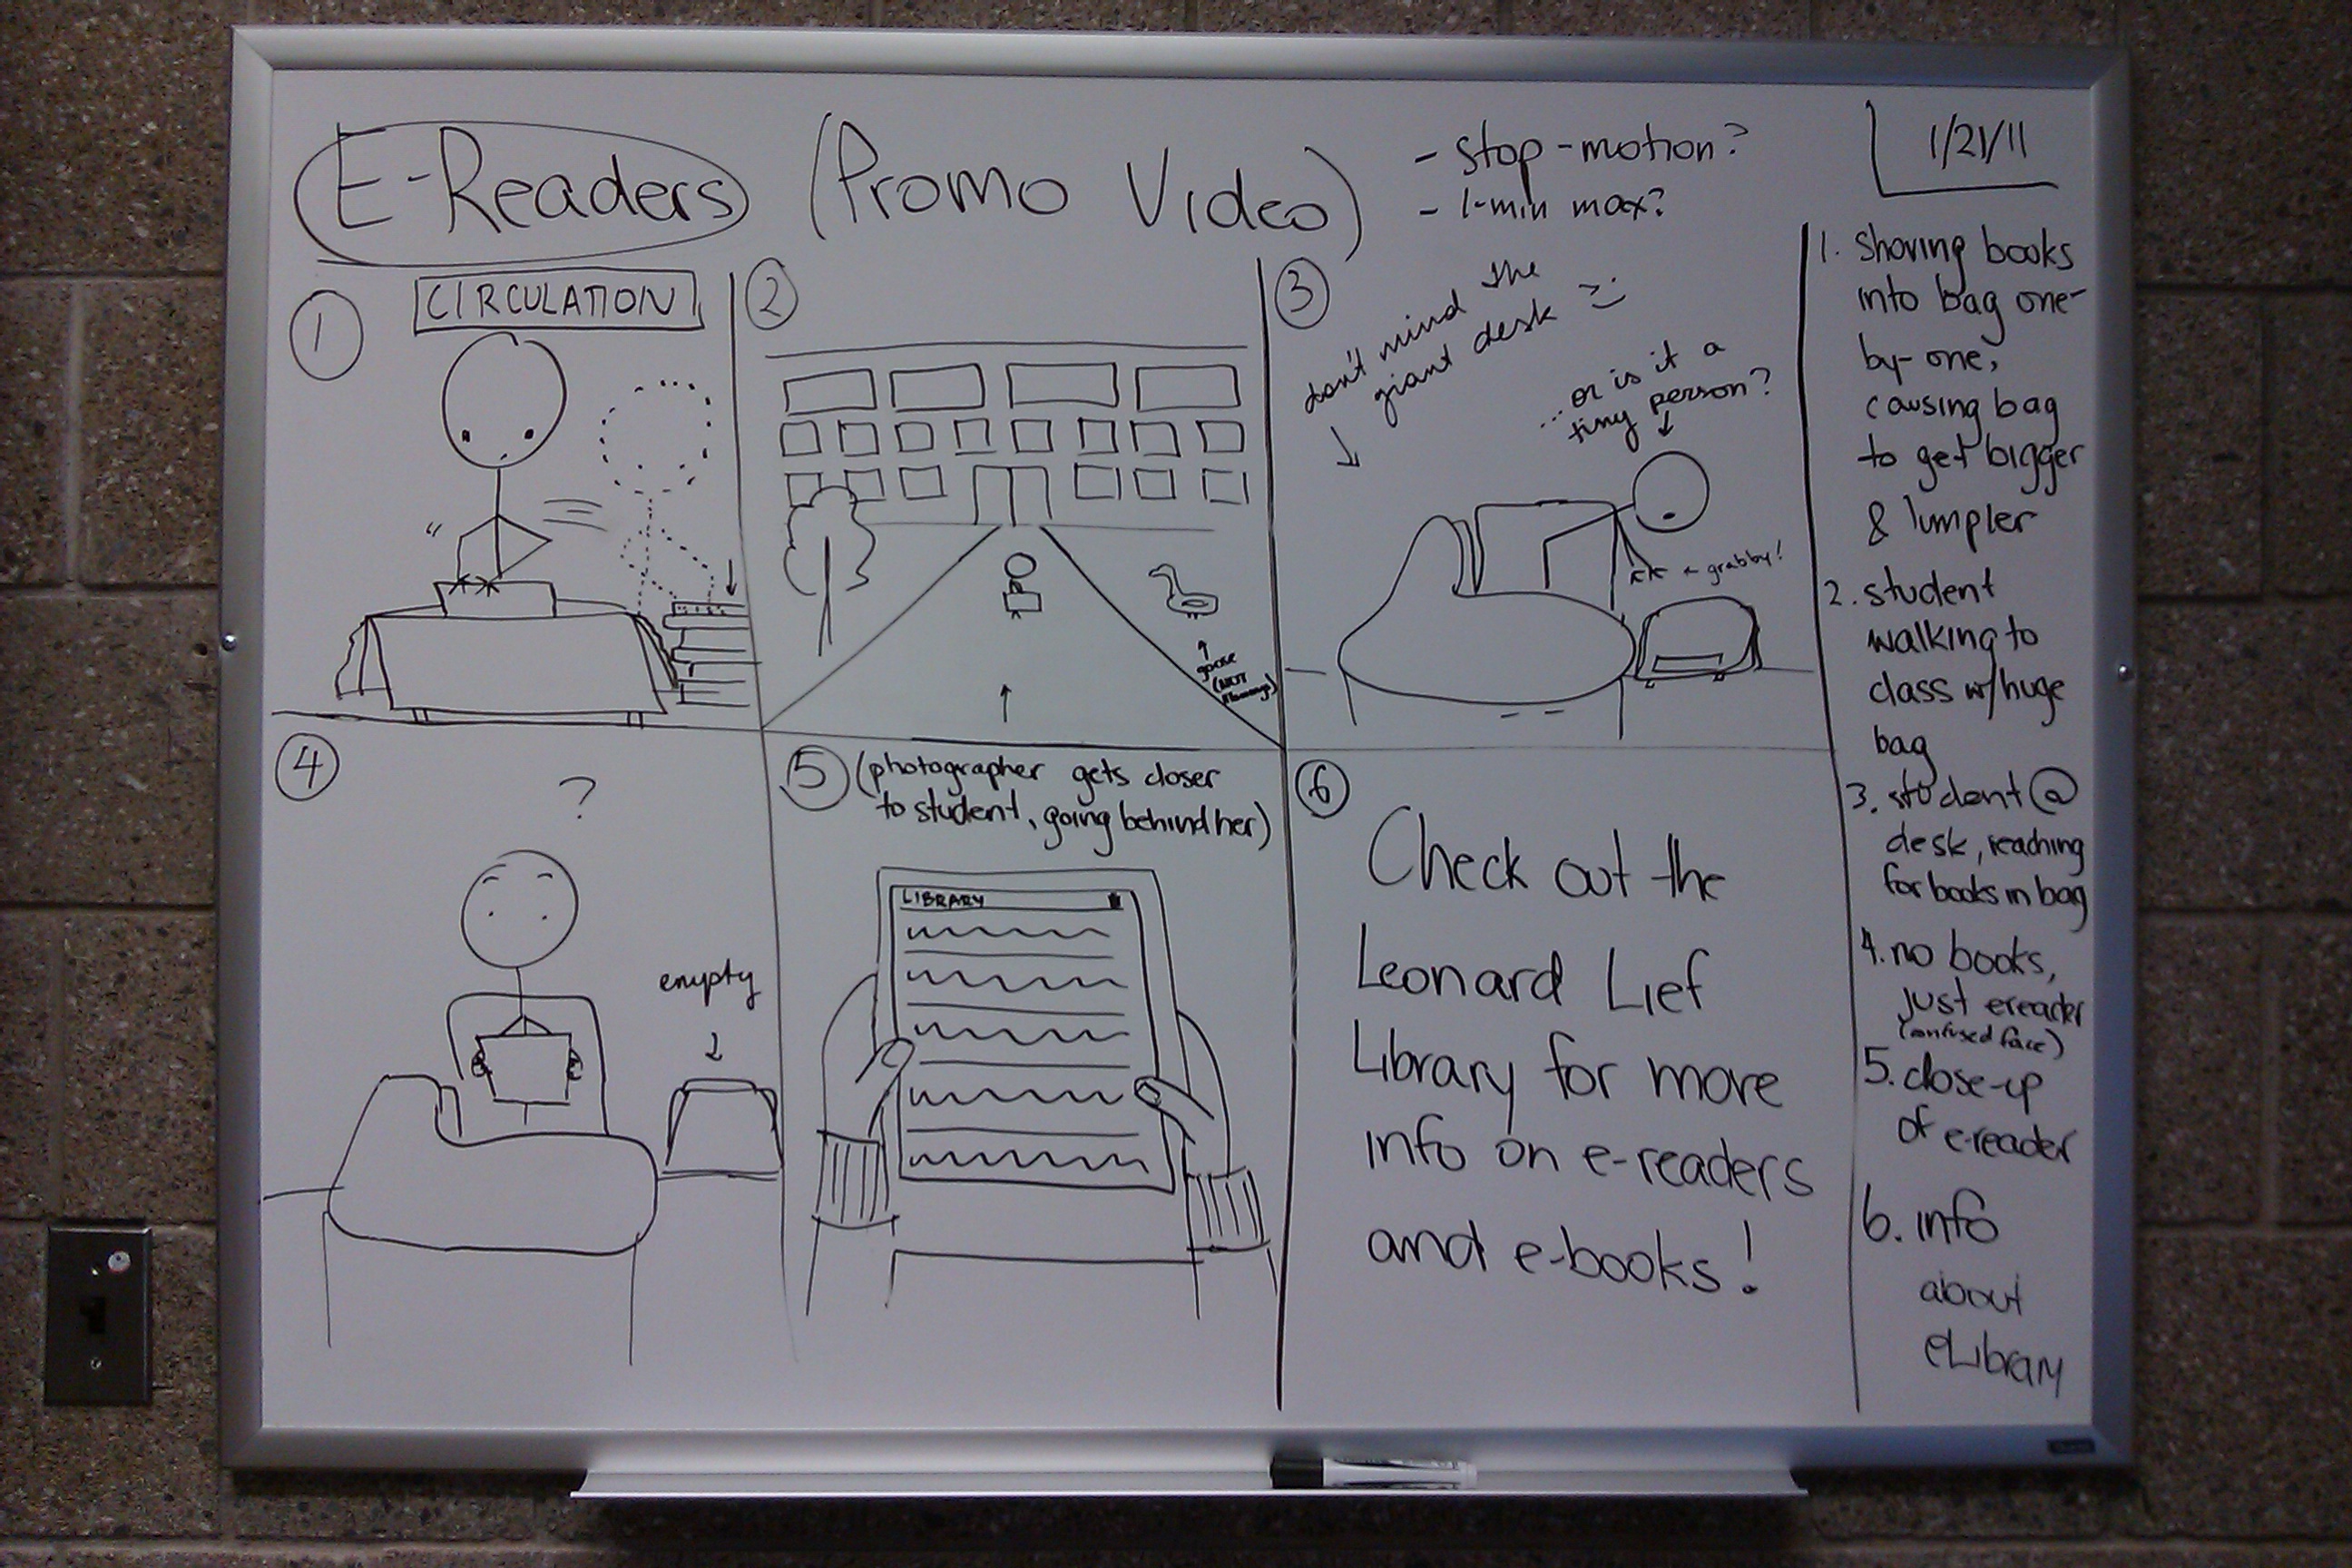 E-Readers (Promo Video)
- stop-motion?
- 1-min max?
1/21/11
1
CIRCULATION
2
goose
(NOT
3
don't mind the
giant desk :)
...or is it a
tiny person?
← grabby!
4
?
empty
5 (photographer gets closer
to student, going behind her)
LIBRARY
6
Check out the
Leonard Lief
Library for more
info on e-readers
and e-books!
1. shoving books
into bag one-
by-one,
causing bag
to get bigger
& lumpier
2. student
walking to
class w/huge
bag
3. student @
desk, reaching
for books in bag
4. no books,
just ereader
(confused face)
5. close-up
of e-reader
6. info
about
eLibrary